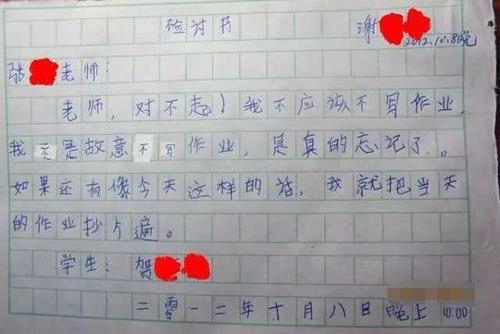 检讨书 谢
2012.10.8晚
张 老师：
老师，对不起！我不应该不写作业，
我不是故意不写作业，是真的忘记了。
如果还有像今天这样的话，我就把当天
的作业抄 遍。
学生：贺
二零一二年十月八日晚上10:00